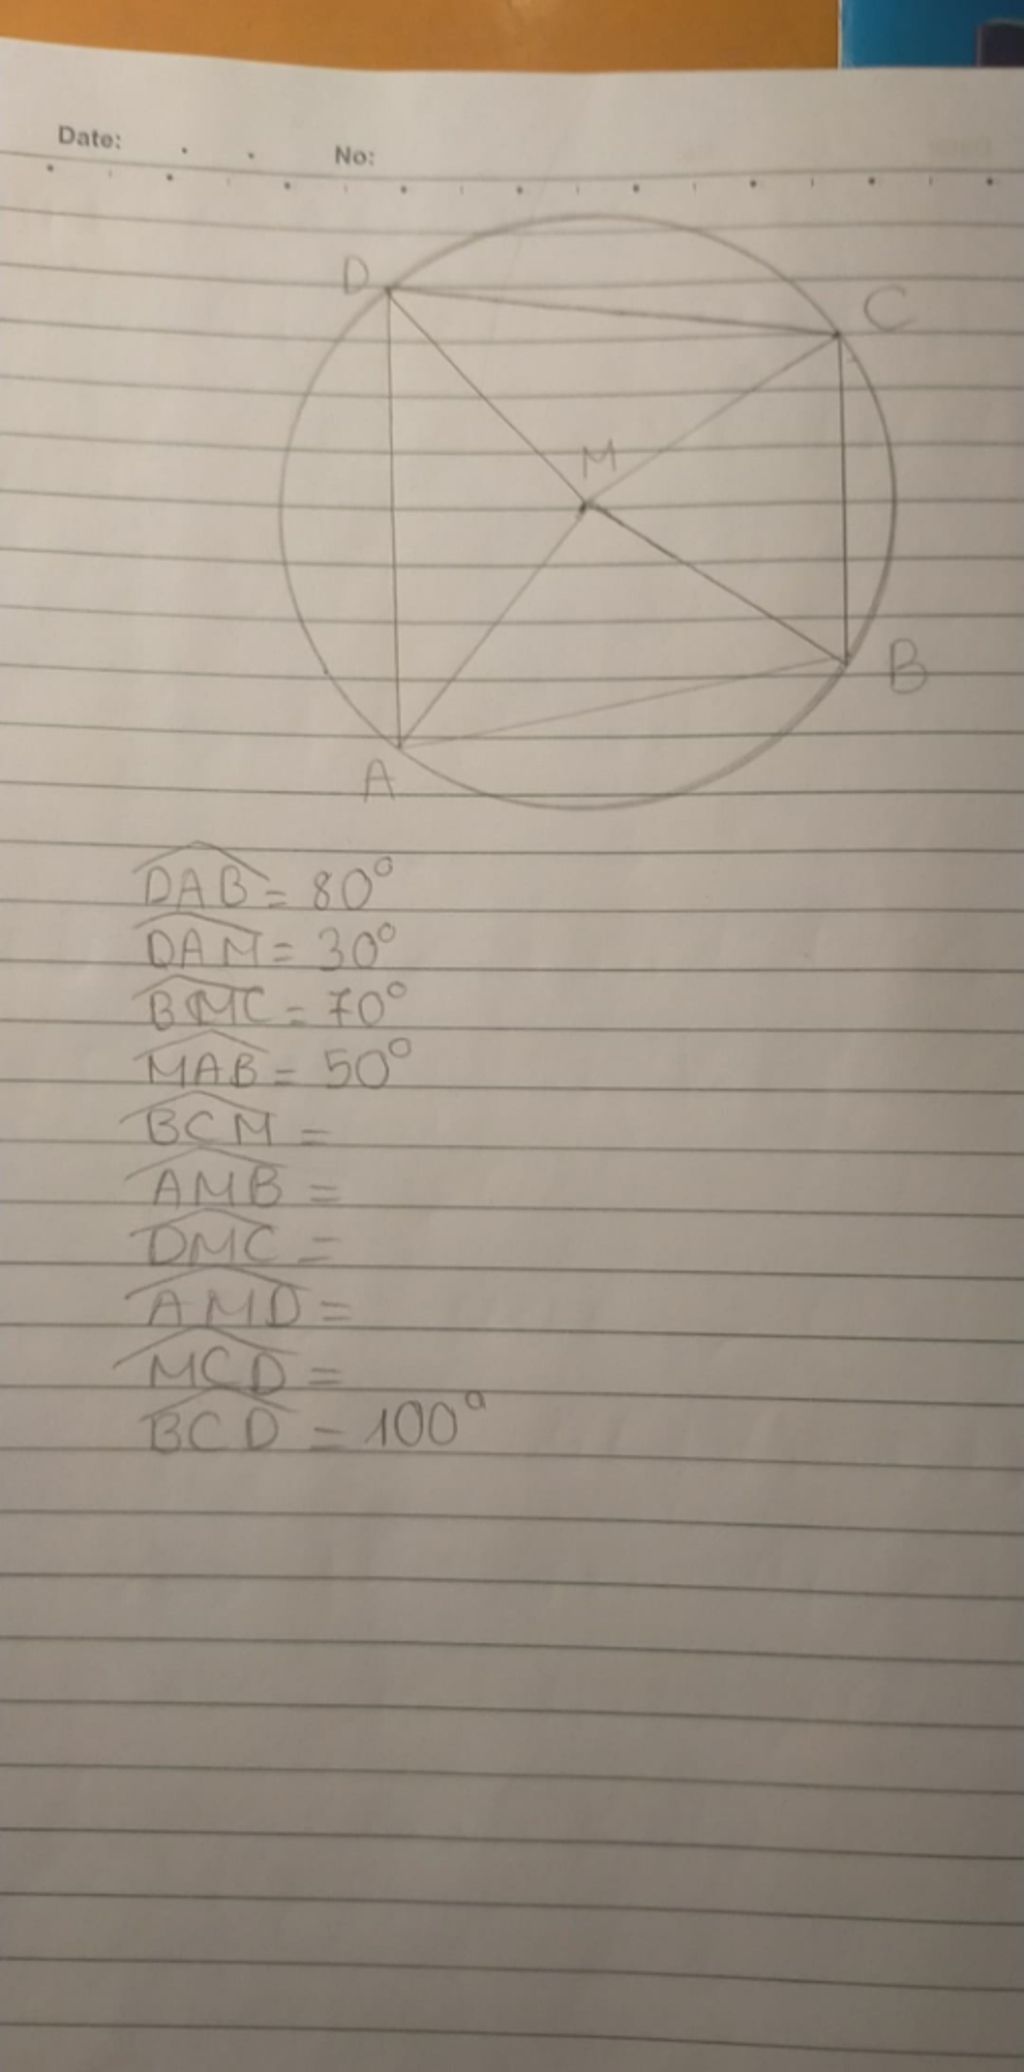 Date: No:
D
C
M
B
A
DAB = 80°
DAM = 30°
BMC = 70°
MAB = 50°
BCM =
AMB =
DMC =
AMD =
MCD =
BCD = 100°